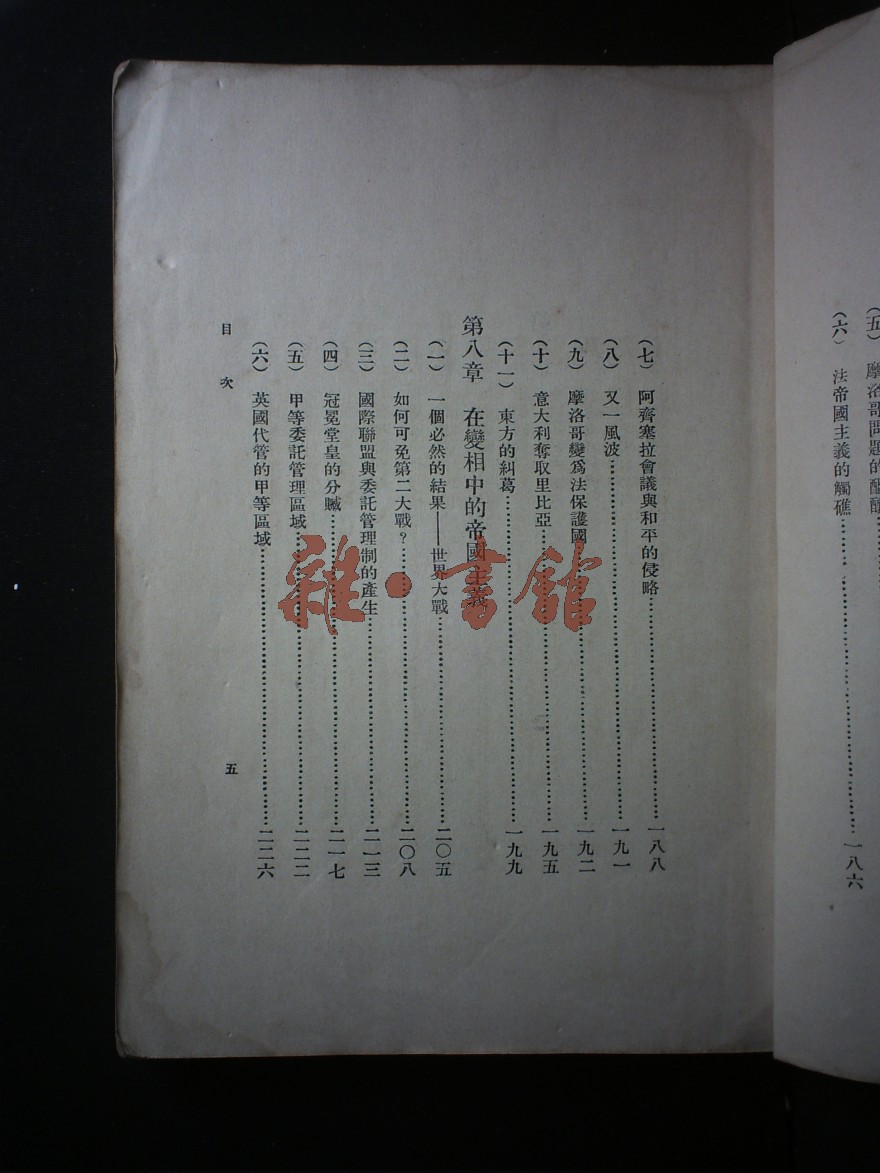 (五) 摩洛哥問題的醞釀
(六) 法帝國主義的觸礁……………………一八六
(七) 阿齊塞拉會議與和平的侵略……………………一八八
(八) 又一風波……………………一九一
(九) 摩洛哥變爲法保護國……………………一九二
(十) 意大利奪取里比亞……………………一九五
(十一) 東方的糾葛……………………一九九
第八章 在變相中的帝國主義
(一) 一個必然的結果——世界大戰……………………二〇五
(二) 如何可免第二大戰？……………………二〇八
(三) 國際聯盟與委託管理制的產生……………………二一三
(四) 冠冕堂皇的分贓……………………二一七
(五) 甲等委託管理區域……………………二二二
(六) 英國代管的甲等區域……………………二二六
目次
五
雜·書館